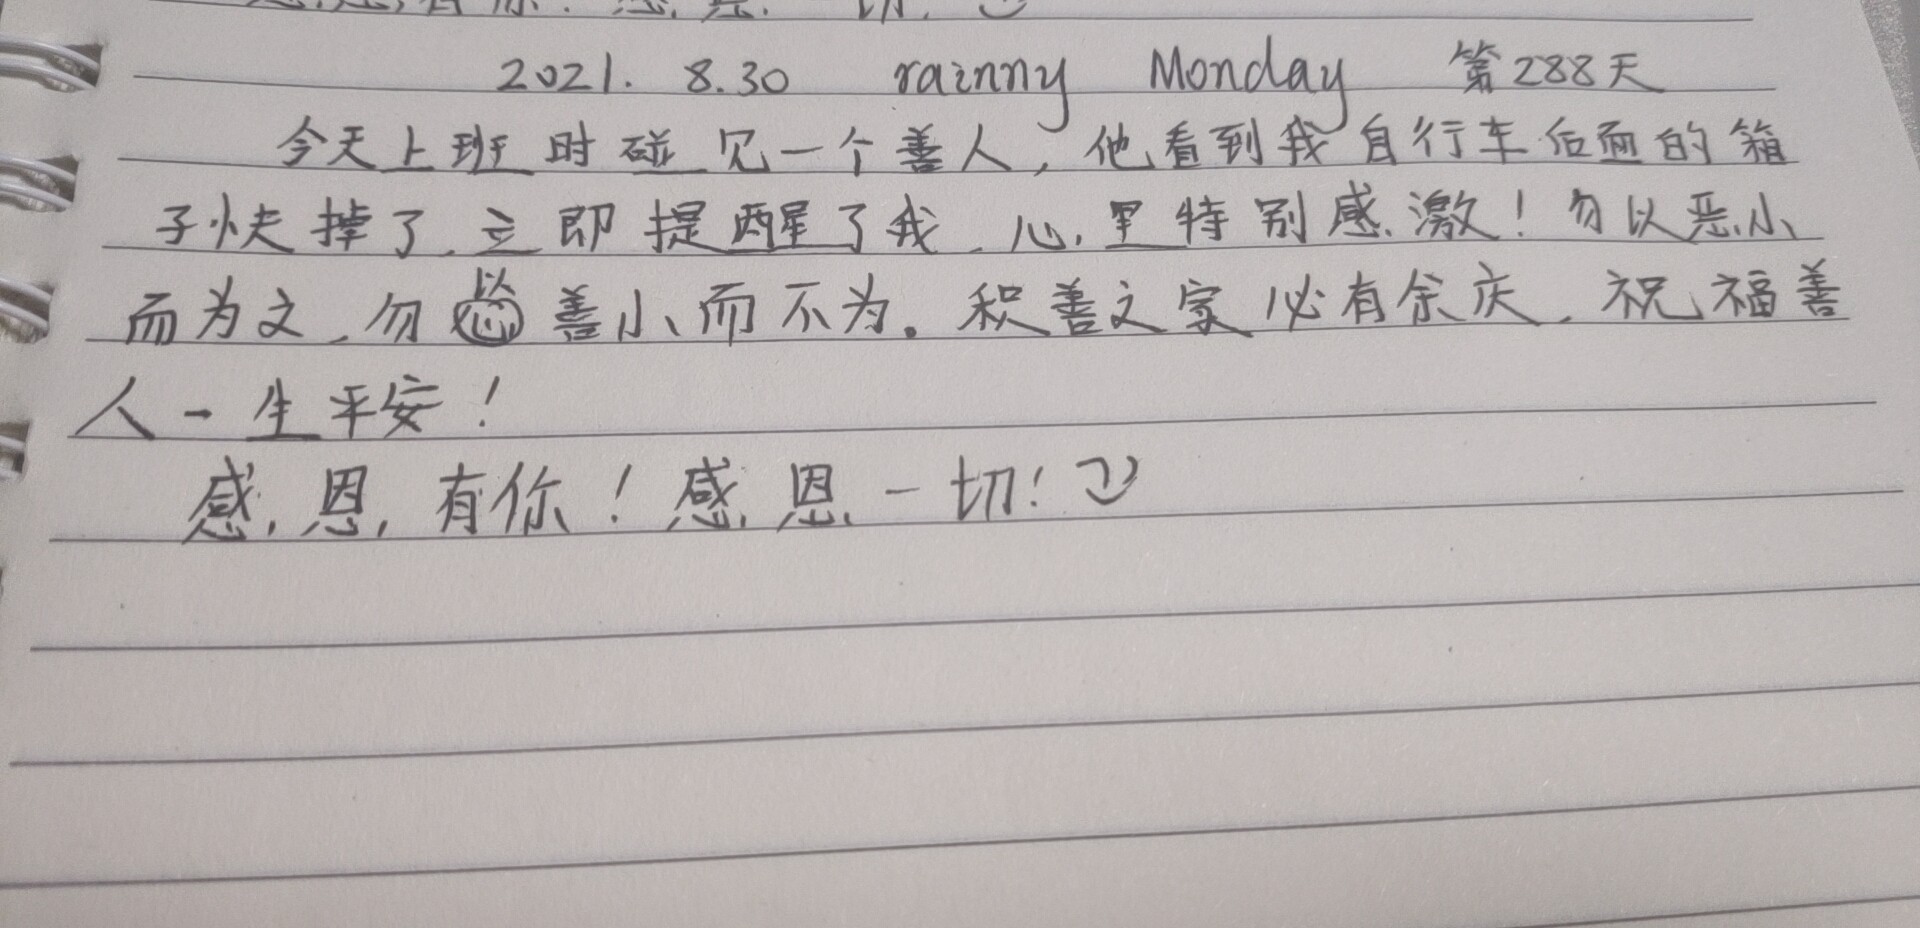 感恩有你！感恩一切！
2021. 8.30 rainny Monday 第288天
今天上班时碰见一个善人，他看到我自行车后面的箱
子快掉了，立即提醒了我，心里特别感激！勿以恶小
而为之，勿以善小而不为。积善之家必有余庆，祝福善
人一生平安！
感恩有你！感恩一切！